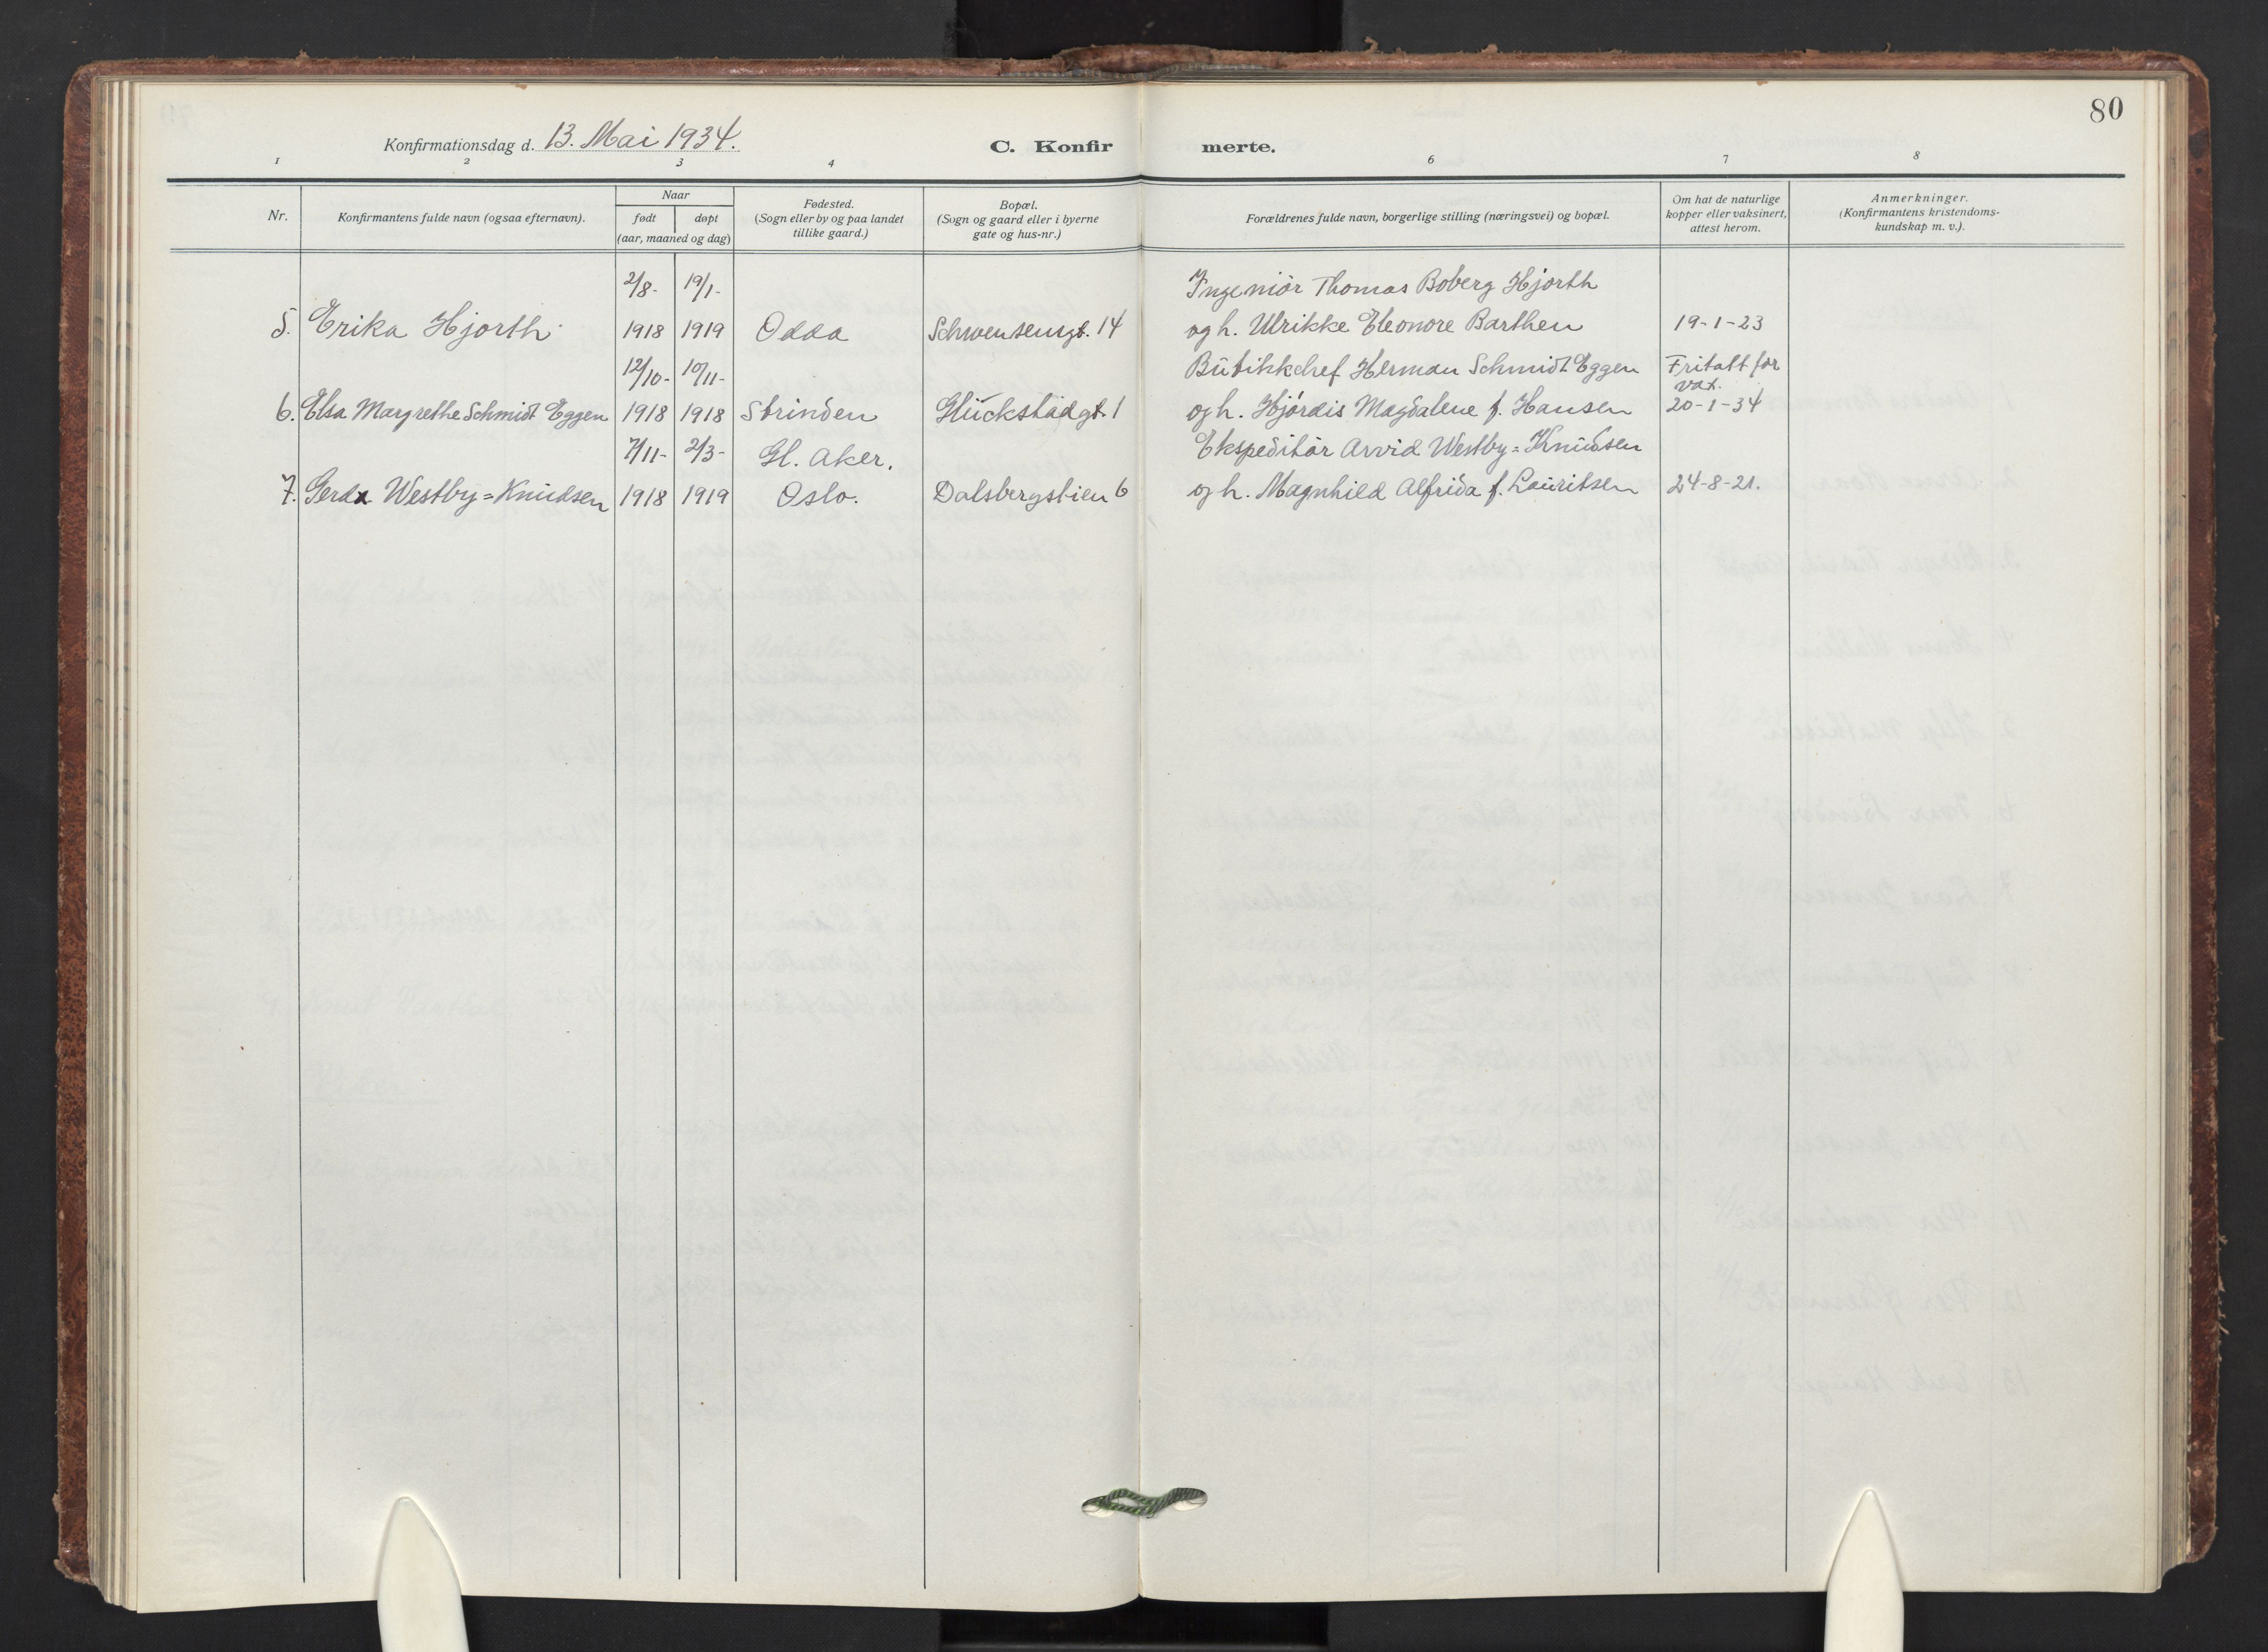 80
Konfirmationsdag d. 13. Mai 1934.
C. Konfirmerte.
1 2 3 4 6 7 8
Nr.
Konfirmantens fulde navn (ogsaa efternavn).
Naar
født døpt
(aar, maaned og dag)
Fødested.
(Sogn eller by og paa landet
tillike gaard.)
Bopæl.
(Sogn og gaard eller i byerne
gate og hus-nr.)
Forældrenes fulde navn, borgerlige stilling (næringsvei) og bopæl.
Om hat de naturlige
kopper eller vaksinert,
attest herom.
Anmerkninger.
(Konfirmantens kristendoms-
kundskap m. v.).
2/8- 19/1- Ingeniör Thomas Boberg Hjorth
5. Erika Hjorth 1918 1919 Odda Schwensensgt. 14 og h. Ulrikke Eleonore Barthen 19-1-23
12/10- 10/11- Butikkchef Herman Schmidt Eggen Fritatt for
vax.
6. Elsa Margrethe Schmidt Eggen 1918 1918 Strinden Glückstadgt. 1 og h. Hjördis Magdalene f. Hansen 20-1-34
7/11- 2/3- Gl. Aker. Ekspeditör Arvid Westby=Knudsen
7. Gerda Westby=Knudsen 1918 1919 Oslo. Dalsbergstien 6 og h. Magnhild Alfrida f. Lauritsen 24-8-21.